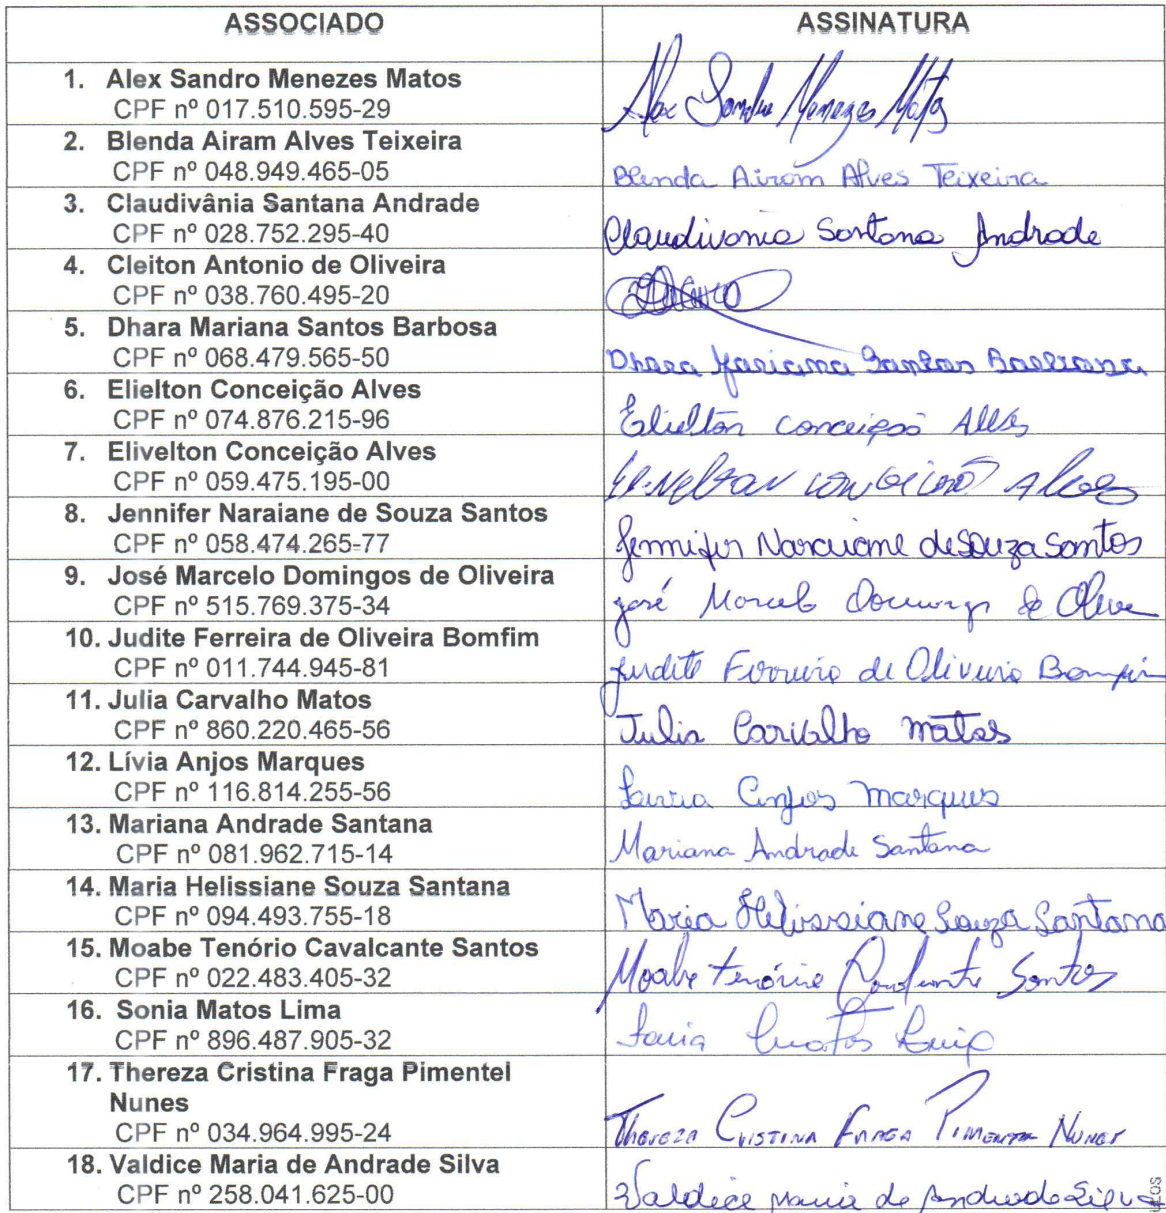 ASSOCIADO ASSINATURA
1. Alex Sandro Menezes Matos
CPF nº 017.510.595-29 Alex Sandro Menezes Matos
2. Blenda Airam Alves Teixeira
CPF nº 048.949.465-05 Blenda Airam Alves Teixeira
3. Claudivânia Santana Andrade
CPF nº 028.752.295-40 Claudivania Santana Andrade
4. Cleiton Antonio de Oliveira
CPF nº 038.760.495-20
5. Dhara Mariana Santos Barbosa
CPF nº 068.479.565-50 Dhara Mariana Santos Barbosa
6. Elielton Conceição Alves
CPF nº 074.876.215-96 Elielton Conceição Alves
7. Elivelton Conceição Alves
CPF nº 059.475.195-00 Elivelton Conceição Alves
8. Jennifer Naraiane de Souza Santos
CPF nº 058.474.265-77 Jennifer Naraiane de Souza Santos
9. José Marcelo Domingos de Oliveira
CPF nº 515.769.375-34 José Marcelo Domingos de Olive
10. Judite Ferreira de Oliveira Bomfim
CPF nº 011.744.945-81 Judite Ferreira de Oliveira Bomfim
11. Julia Carvalho Matos
CPF nº 860.220.465-56 Julia Carvalho Matos
12. Lívia Anjos Marques
CPF nº 116.814.255-56 Anjos Marques
13. Mariana Andrade Santana
CPF nº 081.962.715-14 Mariana Andrade Santana
14. Maria Helissiane Souza Santana
CPF nº 094.493.755-18 Maria Helissiane Souza Santana
15. Moabe Tenório Cavalcante Santos
CPF nº 022.483.405-32 Moabe Tenório Cavalcante Santos
16. Sonia Matos Lima
CPF nº 896.487.905-32 Sonia Matos Lima
17. Thereza Cristina Fraga Pimentel
Nunes
CPF nº 034.964.995-24 Thereza Cristina Fraga Pimentel Nunes
18. Valdice Maria de Andrade Silva
CPF nº 258.041.625-00 Valdice Maria de Andrade Silva